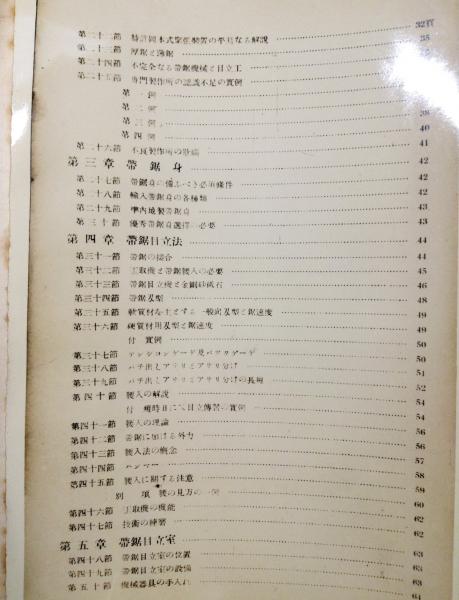 第二十二節 特許岡本式緊張裝置の平易なる解說 32頁
第二十三節 厚鋸と薄鋸 35
第二十四節 不完全なる帶鋸機械と目立工
第二十五節 專門製作所の認識不足の實例
第一例
第二例 38
第三例 39
第四例 40
第二十六節 不良製作所の 41
第三章 帶鋸身 42
第二十七節 帶鋸身の備ふべき必須條件 42
第二十八節 輸入帶鋸身の各種類 42
第二十九節 準內地製帶鋸身 43
第三十節 優秀帶鋸身選擇の必要 43
第四章 帶鋸目立法 44
第三十一節 帶鋸の接合 44
第三十二節 工取機と帶鋸腰入の必要 45
第三十三節 帶鋸目立機と金剛砂砥石 46
第三十四節 帶鋸齒型 48
第三十五節 軟質材を主とする一般向齒型と鋸速度 49
第三十六節 硬質材用齒型と鋸速度 49
付 實例 50
第三十七節 テンションゲージ及バックゲージ 50
第三十八節 バチ出しアサリとアサリ分け 51
第三十九節 バチ出しアサリとアサリ分けの長短 52
第四十節 腰入の解說 54
付 目立傳習の實例 54
第四十一節 腰入の理論 56
第四十二節 帶鋸に加ける外力 56
第四十三節 腰入法の槪念 57
第四十四節 ハンマー 58
第四十五節 腰入に關する注意 59
別項 腰の見方の一例 60
第四十六節 工取機の機能 62
第四十七節 技術の練習 62
第五章 帶鋸目立室 63
第四十八節 帶鋸目立室の位置 63
第四十九節 帶鋸目立室の設備 63
第五十節 機械器具の手入れ 64